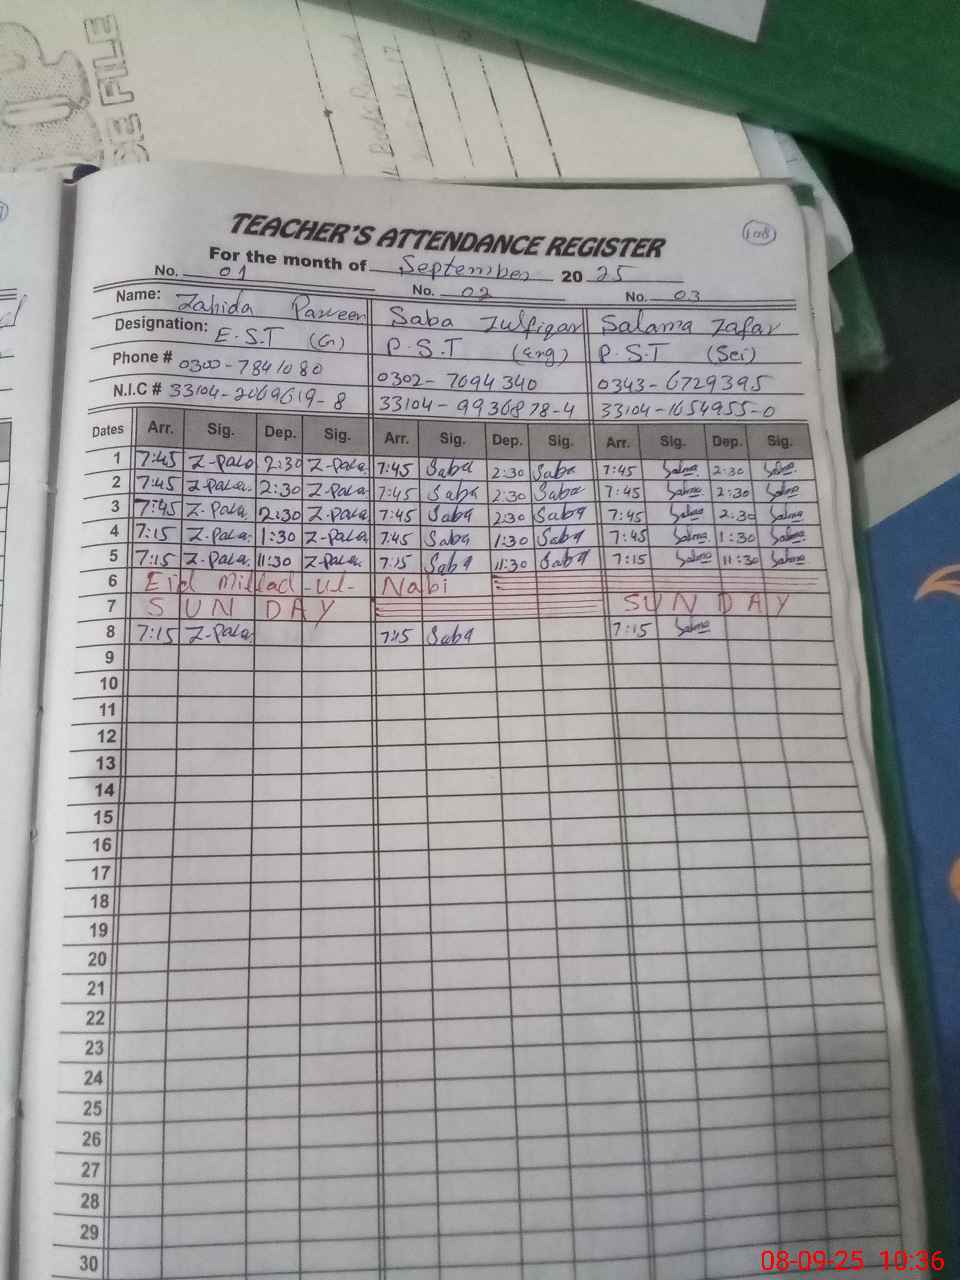 SE FILE
TEACHER'S ATTENDANCE REGISTER
108
For the month of September 2025
No. 01 No. 02 No. 03
Name: Zahida Parveen Saba Zulfiqar Salama Zafar
Designation: E.S.T (G) P.S.T (Eng) P.S.T (Sci)
Phone # 0300-7841080 0302-7694340 0343-6729395
N.I.C # 33104-2069619-8 33104-9936878-4 33104-1654955-0
Dates Arr. Sig. Dep. Sig. Arr. Sig. Dep. Sig. Arr. Sig. Dep. Sig.
1 7:45 Z-Para 2:30 Z-Para 7:45 Saba 2:30 Saba 7:45 Salma 2:30 Salma
2 7:45 Z-Para 2:30 Z-Para 7:45 Saba 2:30 Saba 7:45 Salma 2:30 Salma
3 7:45 Z-Para 2:30 Z-Para 7:45 Saba 2:30 Saba 7:45 Salma 2:30 Salma
4 7:15 Z-Para 1:30 Z-Para 7:45 Saba 1:30 Saba 7:45 Salma 1:30 Salma
5 7:15 Z-Para 11:30 Z-Para 7:15 Saba 11:30 Saba 7:15 Salma 11:30 Salma
6 Eid Millad-ul-Nabi
7 SUNDAY SUNDAY
8 7:15 Z-Para 7:15 Saba 7:15 Salma
9
10
11
12
13
14
15
16
17
18
19
20
21
22
23
24
25
26
27
28
29
30
08-09-25 10:36